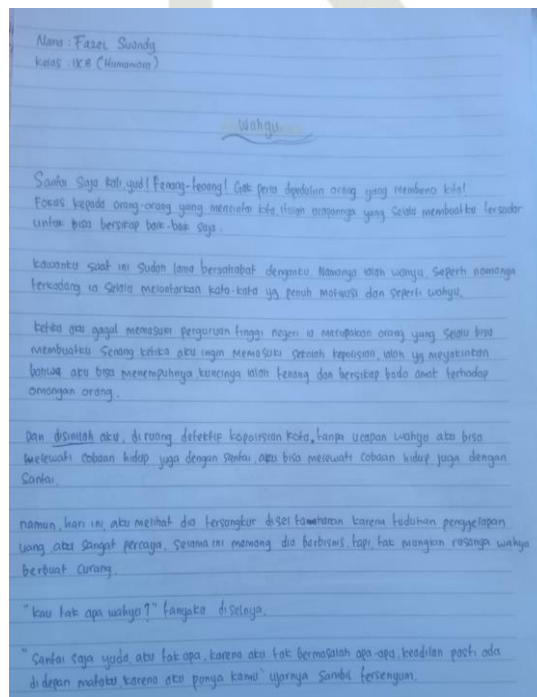 Nama : Fazel Suandy
Kelas : IX B (Humaniora)
Wahyu
Santai Saja kali, yud! Tenang-tenang! Gak perlu dipedulin orang yang membenci kita!
Fokus kepada orang-orang yang mencintai kita, itulah omongannya yang selalu membuatku tersadar
untuk bisa bersikap baik-baik saja.
kawanku saat ini sudah lama bersahabat denganku. Namanya ialah wahyu. Seperti namanya
terkadang ia selalu melontarkan kata-kata yg penuh motivasi dan seperti wahyu.
ketika aku gagal memasuki perguruan tinggi negeri ia merupakan orang yang selalu bisa
membuatku senang ketika aku ingin memasuki sekolah kepolisian, ialah yg meyakinkan
bahwa aku bisa menempuhnya kuncinya ialah tenang dan bersikap bodo amat terhadap
omongan orang.
Dan disinilah aku, di ruang detektip kepolisian kota, tanpa ucapan wahyu aku bisa
melewati cobaan hidup juga dengan santai, aku bisa melewati cobaan hidup juga dengan
Santai.
namun, hari ini, aku melihat dia tersungkur disel tahanan karena tuduhan penggelapan
uang aku sangat percaya, selama ini memang dia berbisnis, tapi, tak mungkin rasanya wahyu
berbuat curang.
"kau tak apa wahyu?" tanyaku di selnya.
"Santai saja yuda, aku tak apa, karena aku tak bermasalah apa-apa, keadilan pasti ada
di depan mataku karena aku punya kamu" ujarnya sambil tersenyum.